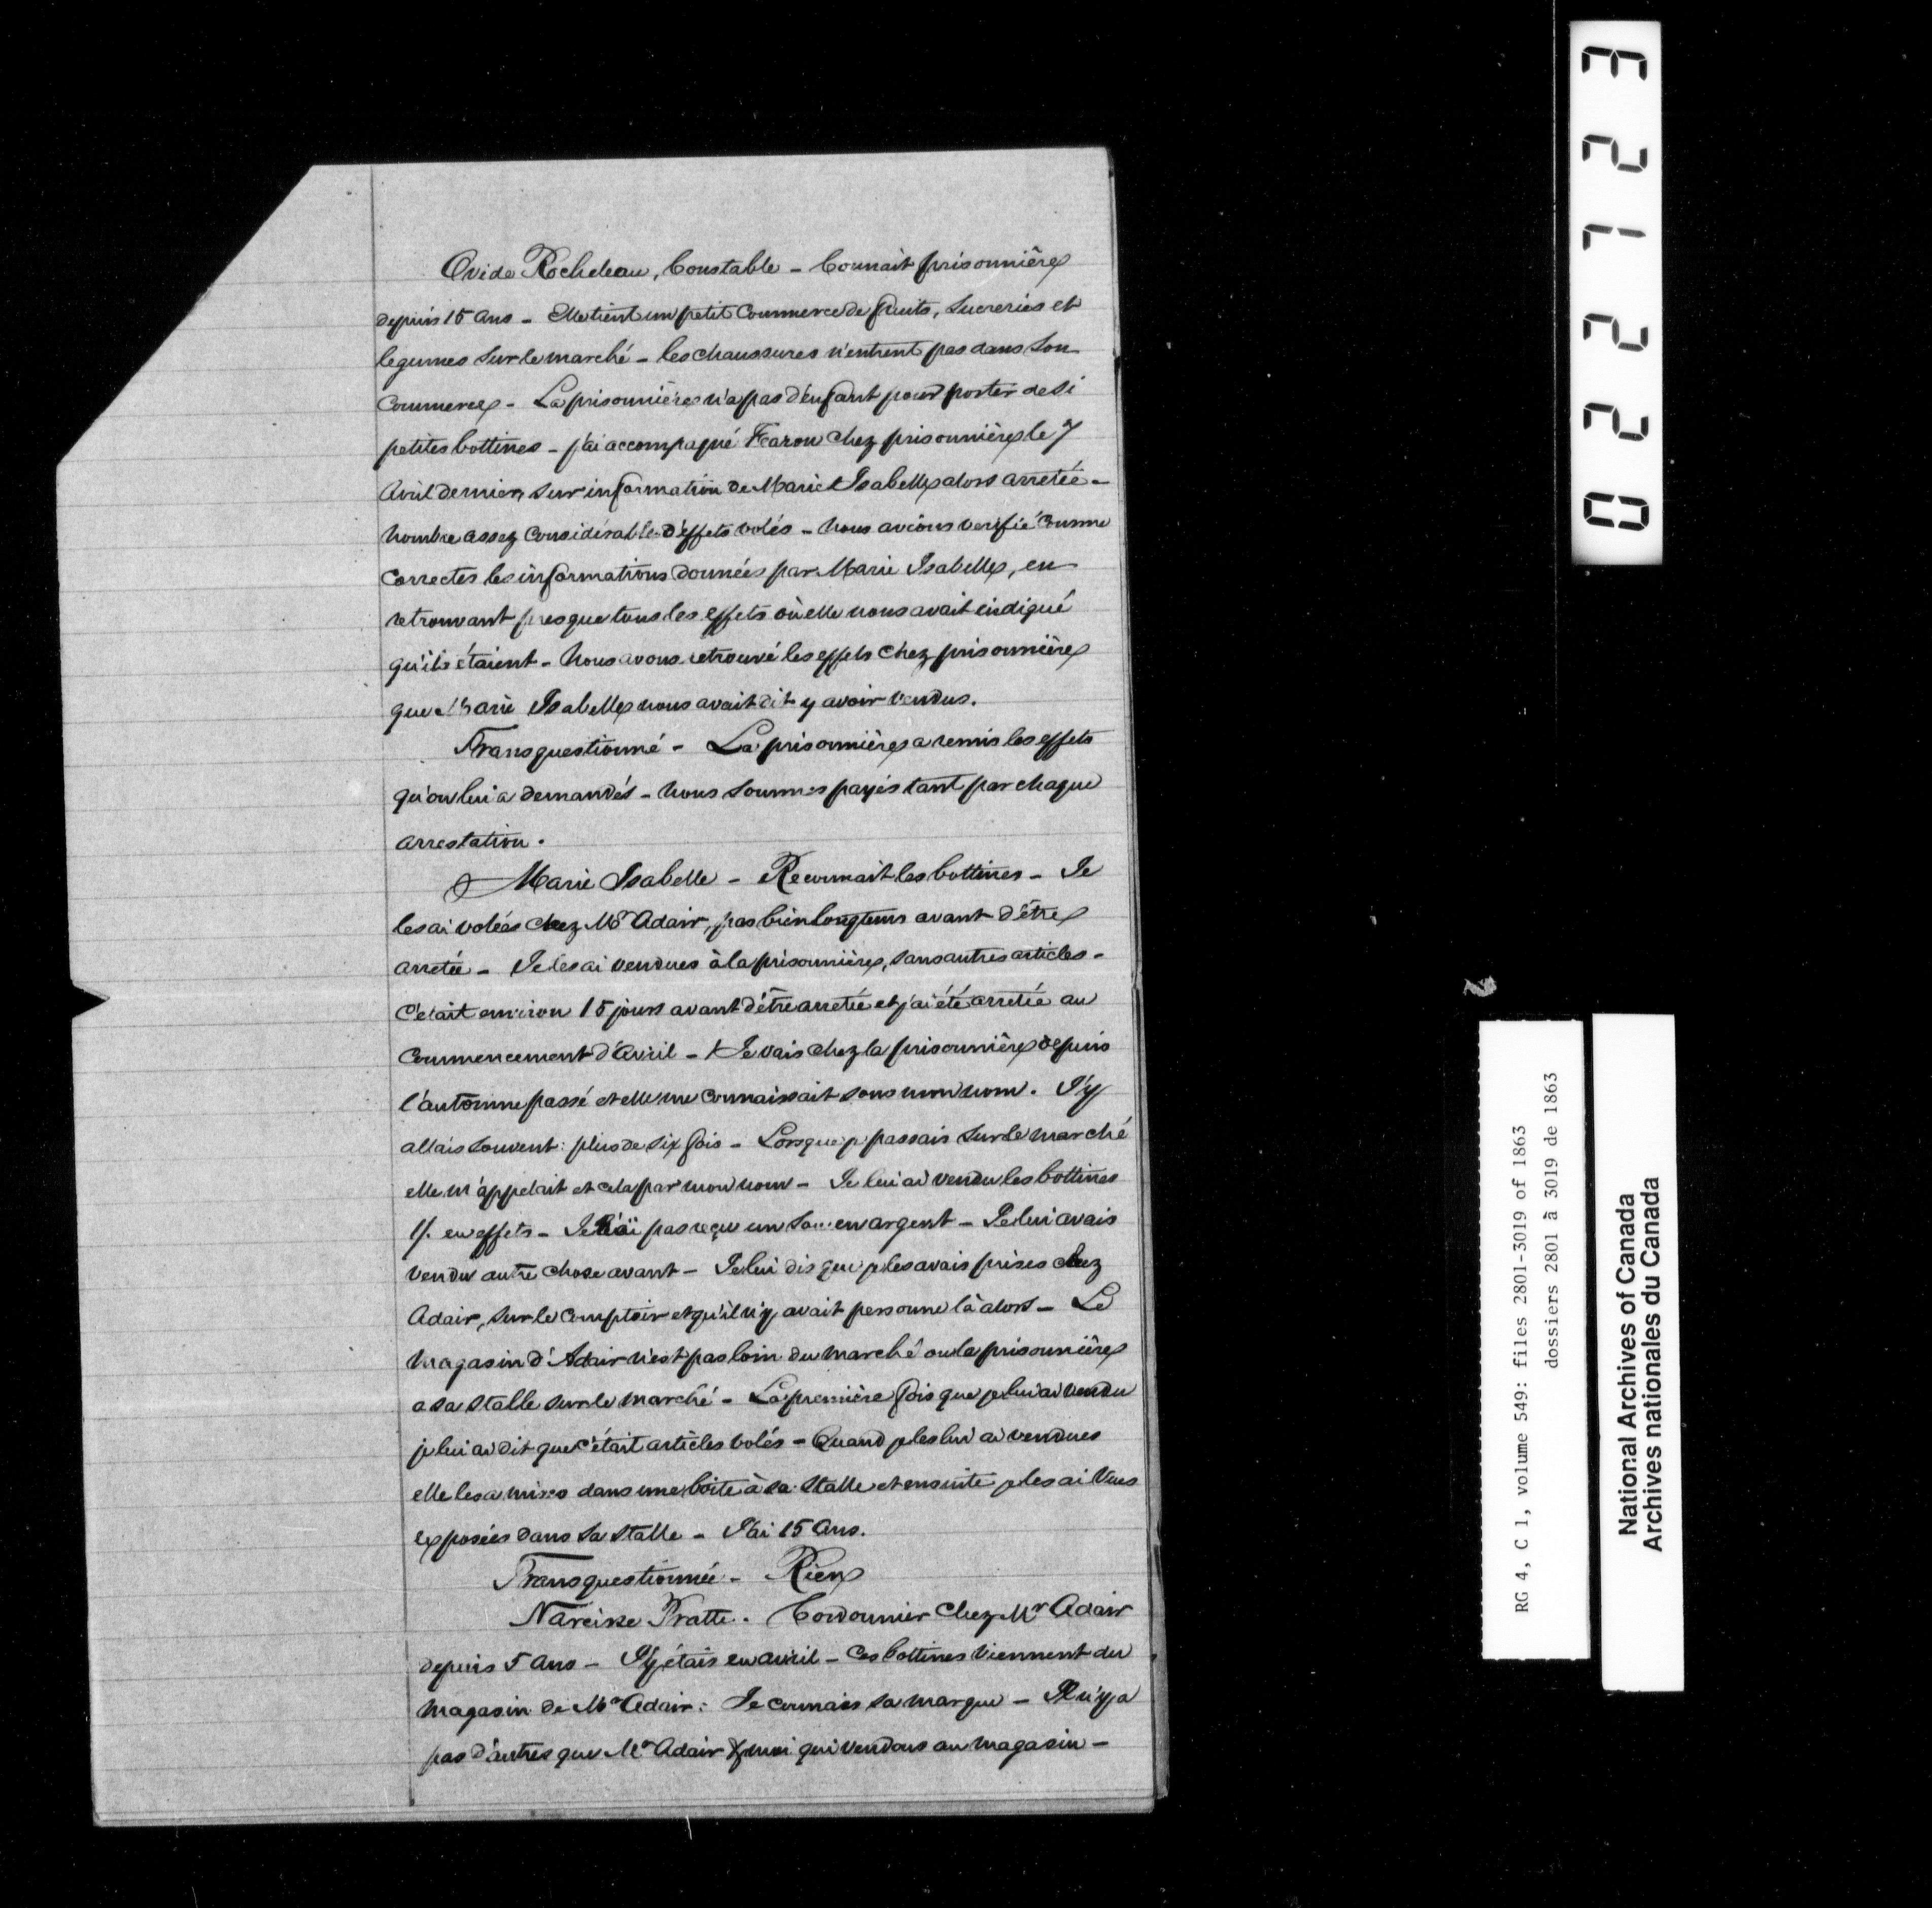 Ovide Rocheleau, Constable – Connait prisonnière
depuis 15 ans – Elle tient un petit commerce de fruits, sucreries et
legumes sur le marché – les chaussures n'entrent pas dans son
commerce – La prisonnière n'a pas d'enfant pour porter de si
petites bottines – j'ai accompagné Fcaron chez prisonnière le 7
Avril dernier, sur information de Marie Isabelle alors arretée –
Nombre assez considérable d'effets volés – Nous avions verifié comme
correctes les informations données par Marie Isabelle, en
retrouvant presque tous les effets où elle nous avait indiqué
qu'ils étaient – Nous avons retrouvé les effets chez prisonnière
que Marie Isabelle nous avait dit y avoir vendus.
Transquestionné – La prisonnière a remis les effets
qu'on lui a demandés – Nous sommes payés tant par chaque
arrestation.
Marie Isabelle – Reconnait les bottines – Je
les ai volées chez Mr Adair, pas bien longtems avant d'être
arretée – Je les ai vendues à la prisonnière, sans autres articles –
C'etait environ 15 jours avant d'être arretée et j'ai été arretée au
commencement d'Avril – Je vais chez la prisonnière depuis
l'automne passé et elle me connaissait sous mon nom. J'y
allais souvent: plus de six fois – Lorsque je passais sur le marché
elle m'appelait et cela par mon nom – Je lui ai vendu les bottines
1/. en effets – Je n'ai pas reçu un sou en argent – Je lui avais
vendu autre chose avant – Je lui dis que je les avais prises chez
Adair, sur le comptoir et qu'il n'y avait personne là alors – Le
magasin d'Adair n'est pas loin du marché ou la prisonnière
a sa stalle sur le marché – La première fois que je lui ai vendu
je lui ai dit que c'était articles volés – Quand je les lui ai vendues
elle les a mises dans une boite à sa stalle et ensuite je les ai vues
exposées dans sa stalle – J'ai 15 Ans.
Transquestionnée – Rien
Narcisse Pratte. Cordonnier chez Mr Adair
depuis 5 ans – J'y étais en avril – Ces bottines viennent du
magasin de Mr Adair: Je connais sa marque – Il n'y a
pas d'autres que Mr Adair & moi qui vendons au magasin –
022123
RG 4, C 1, volume 549: files 2801-3019 of 1863
dossiers 2801 à 3019 de 1863
National Archives of Canada
Archives nationales du Canada